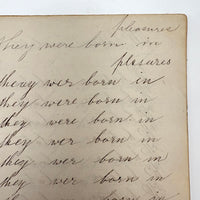 pleasures
They were born in
plsures
thewy wer born in
they were born in
they were born in
they wer born in
they wer born in
they were born in
they were born in